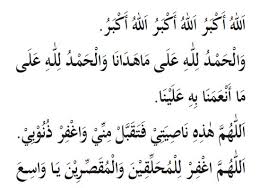 اَللهُ أَكْبَرُ اَللهُ أَكْبَرُ اَللهُ أَكْبَرُ.
وَالْحَمْدُ لِلّٰهِ عَلَى مَاهَدَانَا وَالْحَمْدُ لِلّٰهِ عَلَى
مَا أَنْعَمَنَا بِهِ عَلَيْنَا.
اَللّٰهُمَّ هٰذِهِ نَاصِيَتِيْ فَتَقَبَّلْ مِنِّيْ وَاغْفِرْ ذُنُوْبِيْ.
اَللّٰهُمَّ اغْفِرْ لِلْمُحَلِّقِيْنَ وَالْمُقَصِّرِيْنَ يَا وَاسِعَ